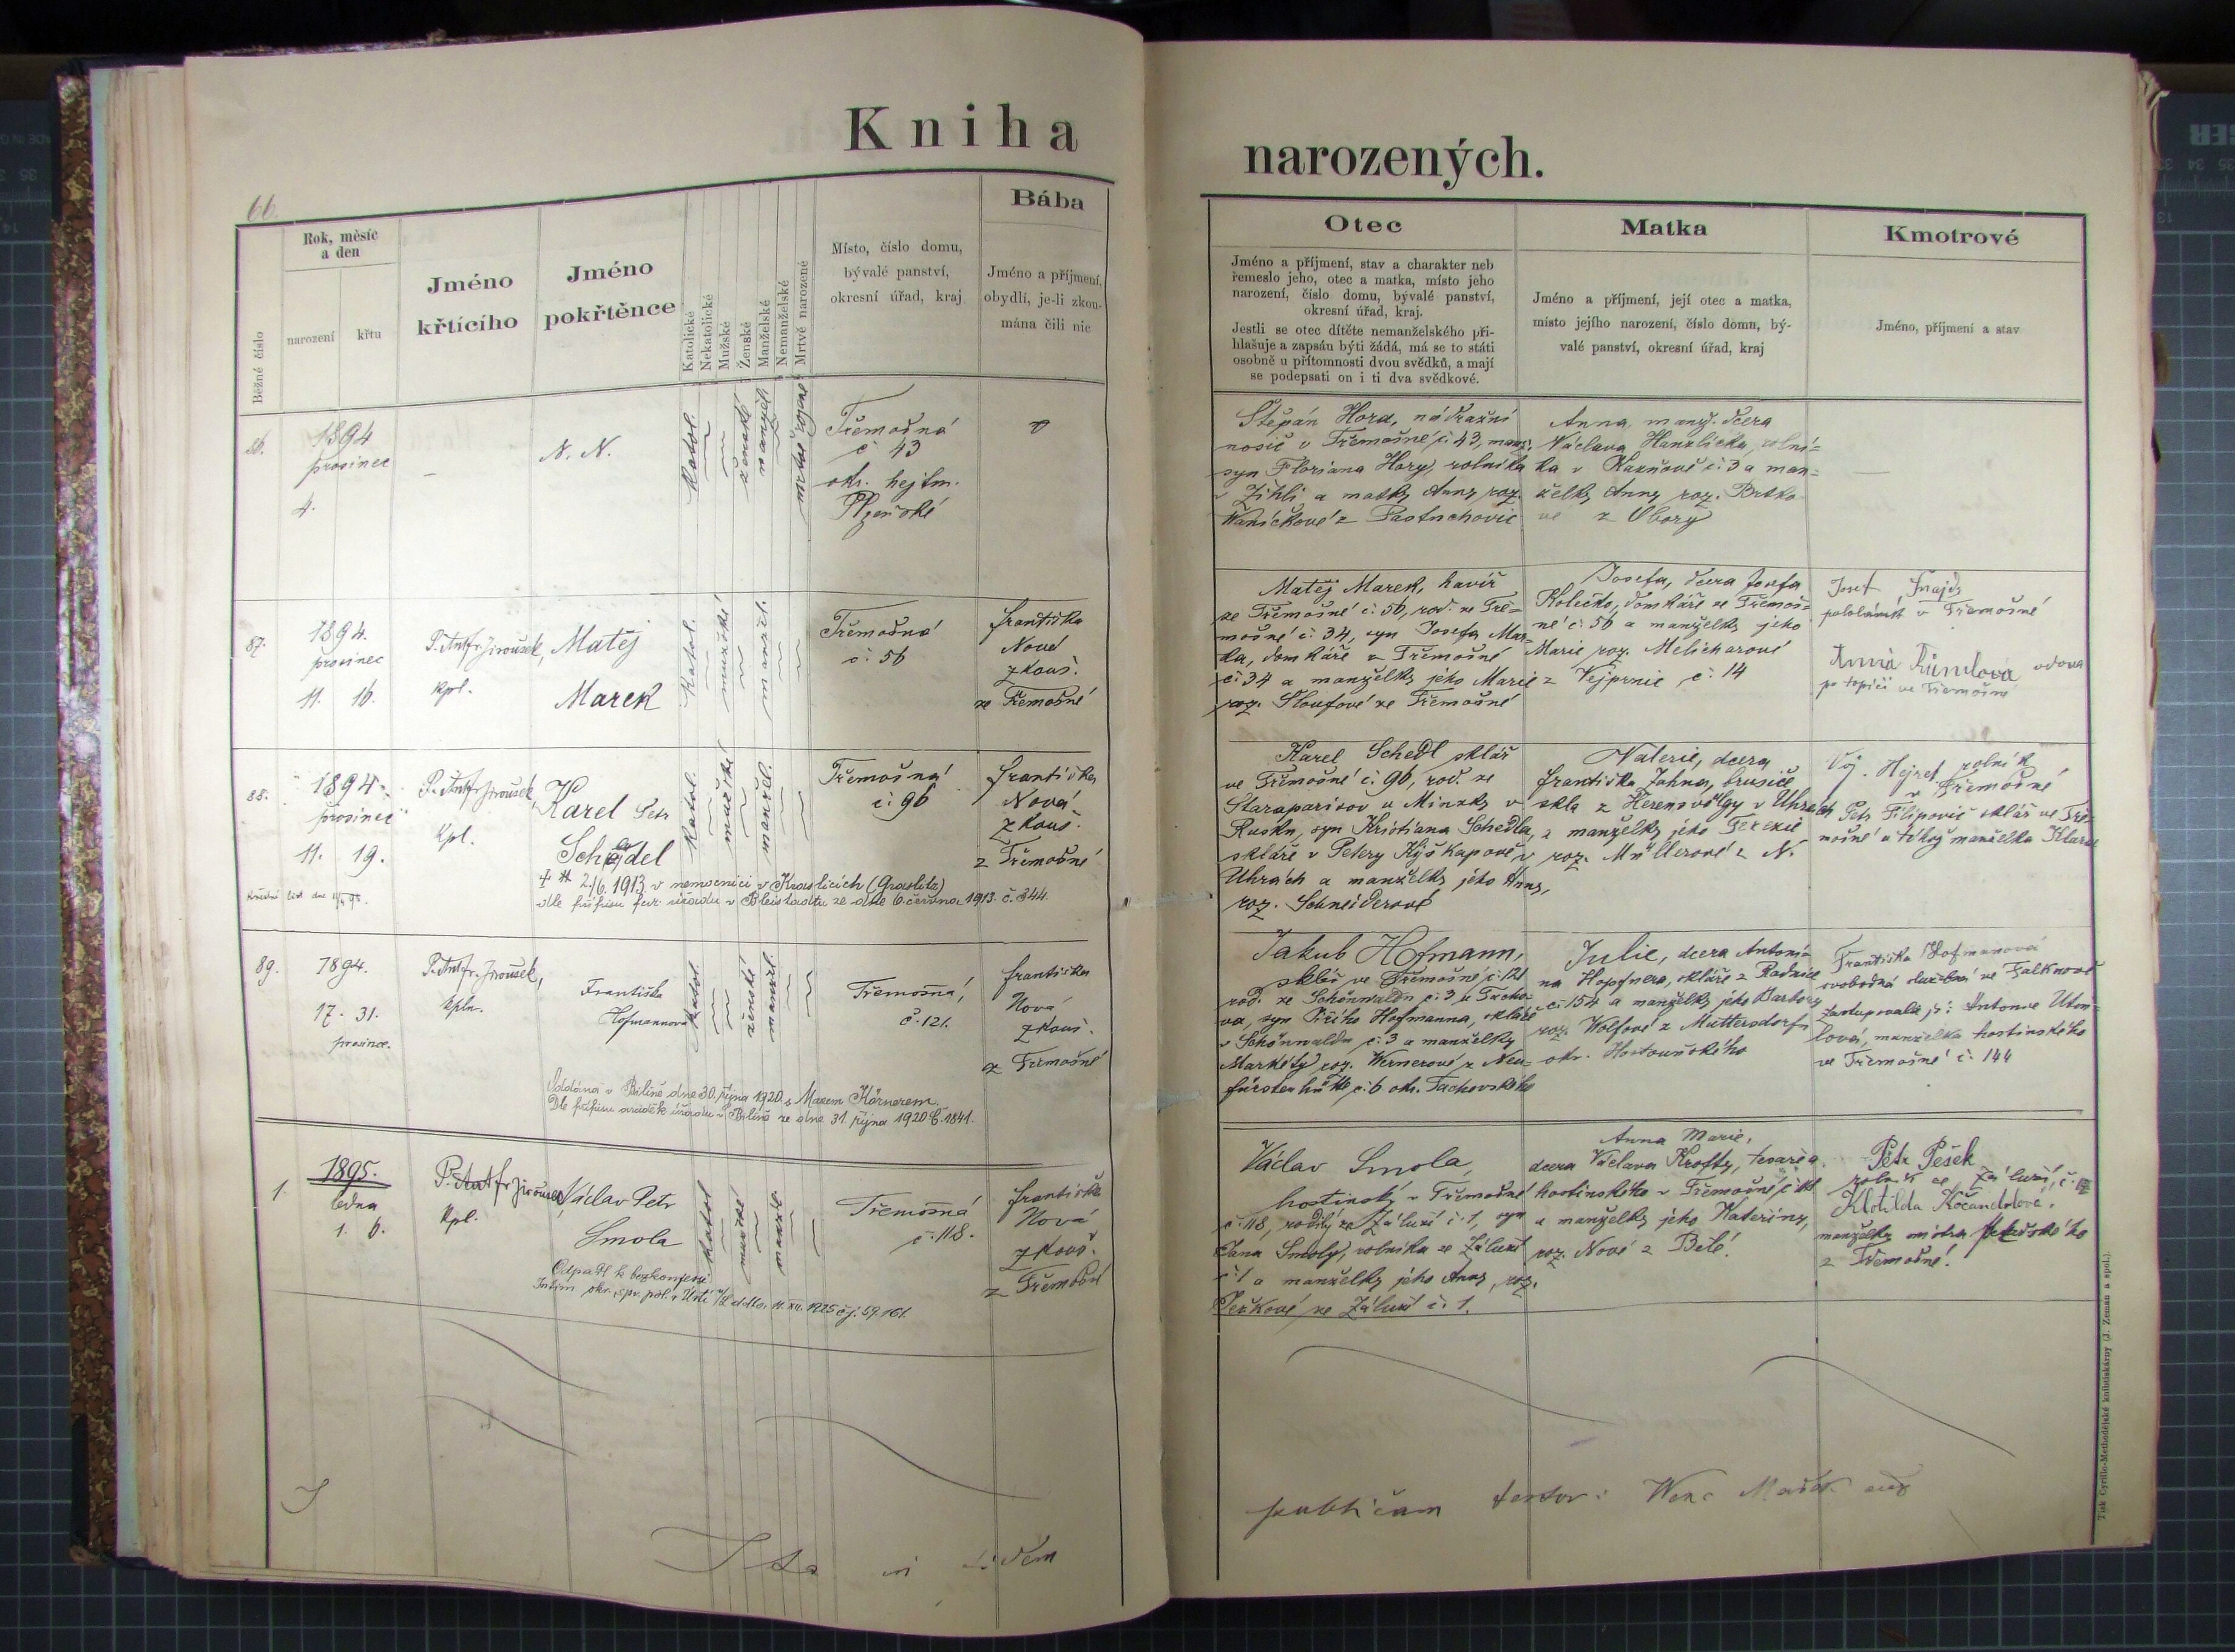 Kniha
narozených.
66.
Běžné číslo
Rok, měsíc
a den
narození
křtu
Jméno
křtícího
Jméno
pokřtěnce
Katolické
Nekatolické
Mužské
Ženské
Manželské
Nemanželské
Mrtvě narozené
Místo, číslo domu,
bývalé panství,
okresní úřad, kraj
Bába
Jméno a příjmení,
obydlí, je-li zkou-
mána čili nic
Otec
Jméno a příjmení, stav a charakter neb
řemeslo jeho, otec a matka, místo jeho
narození, číslo domu, bývalé panství,
okresní úřad, kraj.
Jestli se otec dítěte nemanželského při-
hlašuje a zapsán býti žádá, má se to státi
osobně u přítomnosti dvou svědků, a mají
se podepsati on i ti dva svědkové.
Matka
Jméno a příjmení, její otec a matka,
místo jejího narození, číslo domu, bý-
valé panství, okresní úřad, kraj
Kmotrové
Jméno, příjmení a stav
86.
1894
prosinec
4.
N. N.
katol.
ženské
manžel.
Třemošná
č. 43
okr. hejtm.
Plzeňské
Štěpán Hora, nádražní
nosič v Třemošné č. 43, manž.
syn Floriana Hory, rolníka
v Žihli a matky Anny roz.
Vaníčkové z Pastuchovic
Anna, manž. dcera
Václava Hanzlíčka, rolní-
ka v Kaznově č. 3 a man-
želky Anny roz. Brtko-
vé z Obory
87.
1894.
prosinec
11. 16.
P. Ant. fr. Jiroušek,
kpl.
Matěj
Marek
katol.
mužské
manžel.
Třemošná
č. 56
Františka
Nová
zkouš.
ze Třemošné
Matěj Marek, havíř
ze Třemošné č. 56, rod. ze Tře-
mošné č. 34, syn Josefa Mar-
ka, domkáře z Třemošné
č. 34 a manželky jeho Marie
roz. Sloufové ze Třemošné
Josefa, dcera Josefa
domkáře ze Třemoš-
né č. 56 a manželky jeho
Marie roz. Melicharové
z Vejprnic č. 14
Josef
pololáník v Třemošné
Anna vdova
po topiči ve Třemošné
88.
1894.
prosinec
11. 19.
P. Ant. fr. Jiroušek
kpl.
Karel Petr
Schedel
katol.
mužské
manžel.
Třemošná
č. 96
Františka
Nová
zkouš.
z Třemošné
Křestní list dne
† 2./6. 1913 v nemocnici v Kraslicích (Graslitz)
dle přípisu far. úřadu v Bleistadtu ze dne 6. června 1913. č. 344.
Karel Schedl sklář
ve Třemošné č. 96, rod. ze
Staraparisov u Minsky v
Rusku, syn Kristiana Schedla,
skláře v Petery v
Uhrách a manželky jeho Anny,
roz. Schneiderové
Valerie, dcera
Františka Jahna, brusiče
skla z v Uhrách
a manželky jeho Terezie
roz. Müllerové z N.
Voj. Hejret rolník
v Třemošné
Petr Filipovič sklář ve Tře-
mošné a téhož manželka Klara
89.
1894.
17. 31.
prosince.
P. Ant. fr. Jiroušek,
kpln.
Františka
Hofmannová
katol.
ženské
manžel.
Třemošná,
č. 121.
Františka
Nová
zkouš.
z Třemošné
Oddána v Bílině dne 30. října 1920 s Maxem Körnerem.
Dle přípisu úřadu v Bílině ze dne 31. října 1920 č. 1841.
Jakub Hofmann,
sklář ve Třemošné č. 121
rod. ze Schönwaldu č. 3 u Tacho-
va, syn Jiřího Hofmanna, skláře
v Schönwaldu č. 3 a manželky
Markéty roz. Wernerové z Neu-
fürstenhütte č. 6 okr. Tachovského
Julie, dcera Antoni-
na Hopfnera, skláře z Radnice
č. 154 a manželky jeho Barbory
roz. Wolfové z Muttersdorfu
okr. Horšovského
Františka Hofmanová
svobodná služebná ve Falknově
zastupovala ji: Antonie
manželka hostinského
ve Třemošné č. 144
1.
1895.
ledna
1. 6.
P. Ant. fr. Jiroušek
kpl.
Václav Petr
Smola
katol
mužské
manžel.
Třemošná
č. 118.
Františka
Nová
zkouš.
z Třemošné
Odpadl k bezkonfessi
Intim. okr. spr. pol. v Ústí n/L ddto. 11. XII. 1925 čj. 59.161.
Václav Smola,
hostinský v Třemošné
č. 118, rodilý ze Záluží č. 1, syn
Jana Smoly, rolníka ze Záluží
č. 1 a manželky jeho Anny, roz.
Peškové ze Záluží č. 1.
Anna Marie,
dcera Václava Krofty, tesaře a
hostinského v Třemošné
a manželky jeho Kateřiny,
roz. Nové z Bělé.
Petr Pešek
rolník ze Záluží, č.
Klotilda Kočandrlová,
manželka mistra pekařského
z Třemošné.
Tisk Cyrillo-Methodějské knihtiskárny (J. Zeman a spol.).